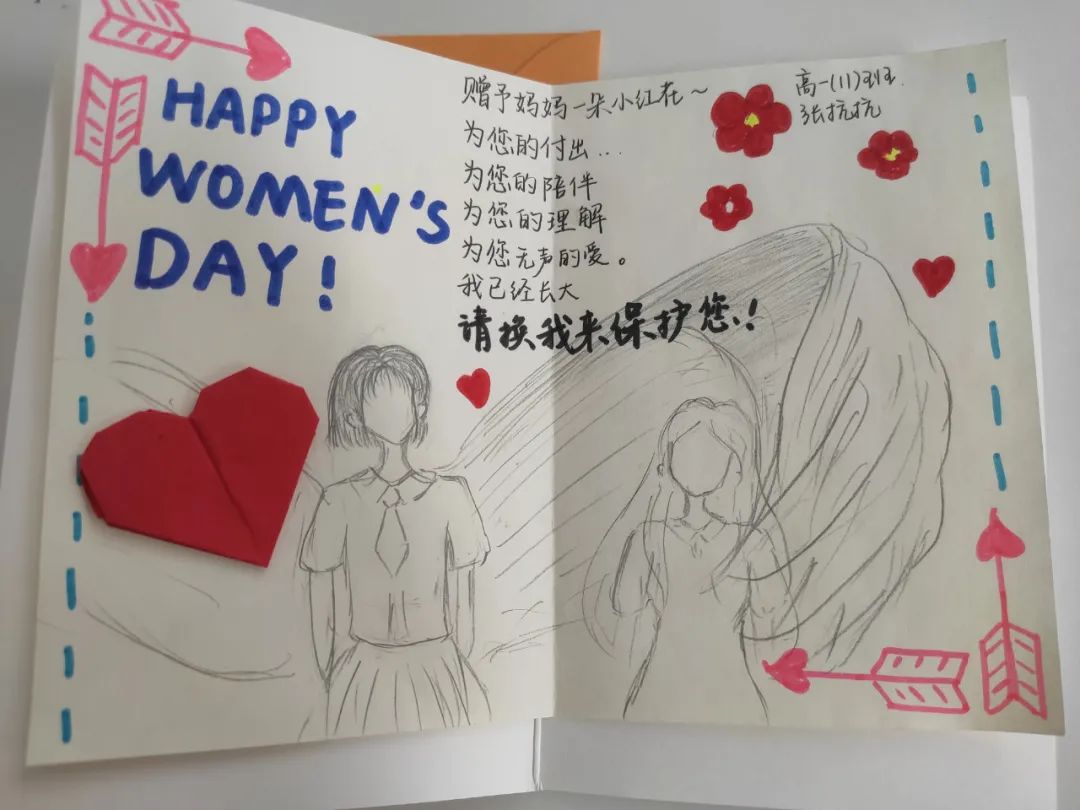 HAPPY
WOMEN'S
DAY!
赠予妈妈一朵小红花~
为您的付出...
为您的陪伴
为您的理解
为您无声的爱。
我已经长大
请换我来保护您!
高一(11)班.
张抗抗